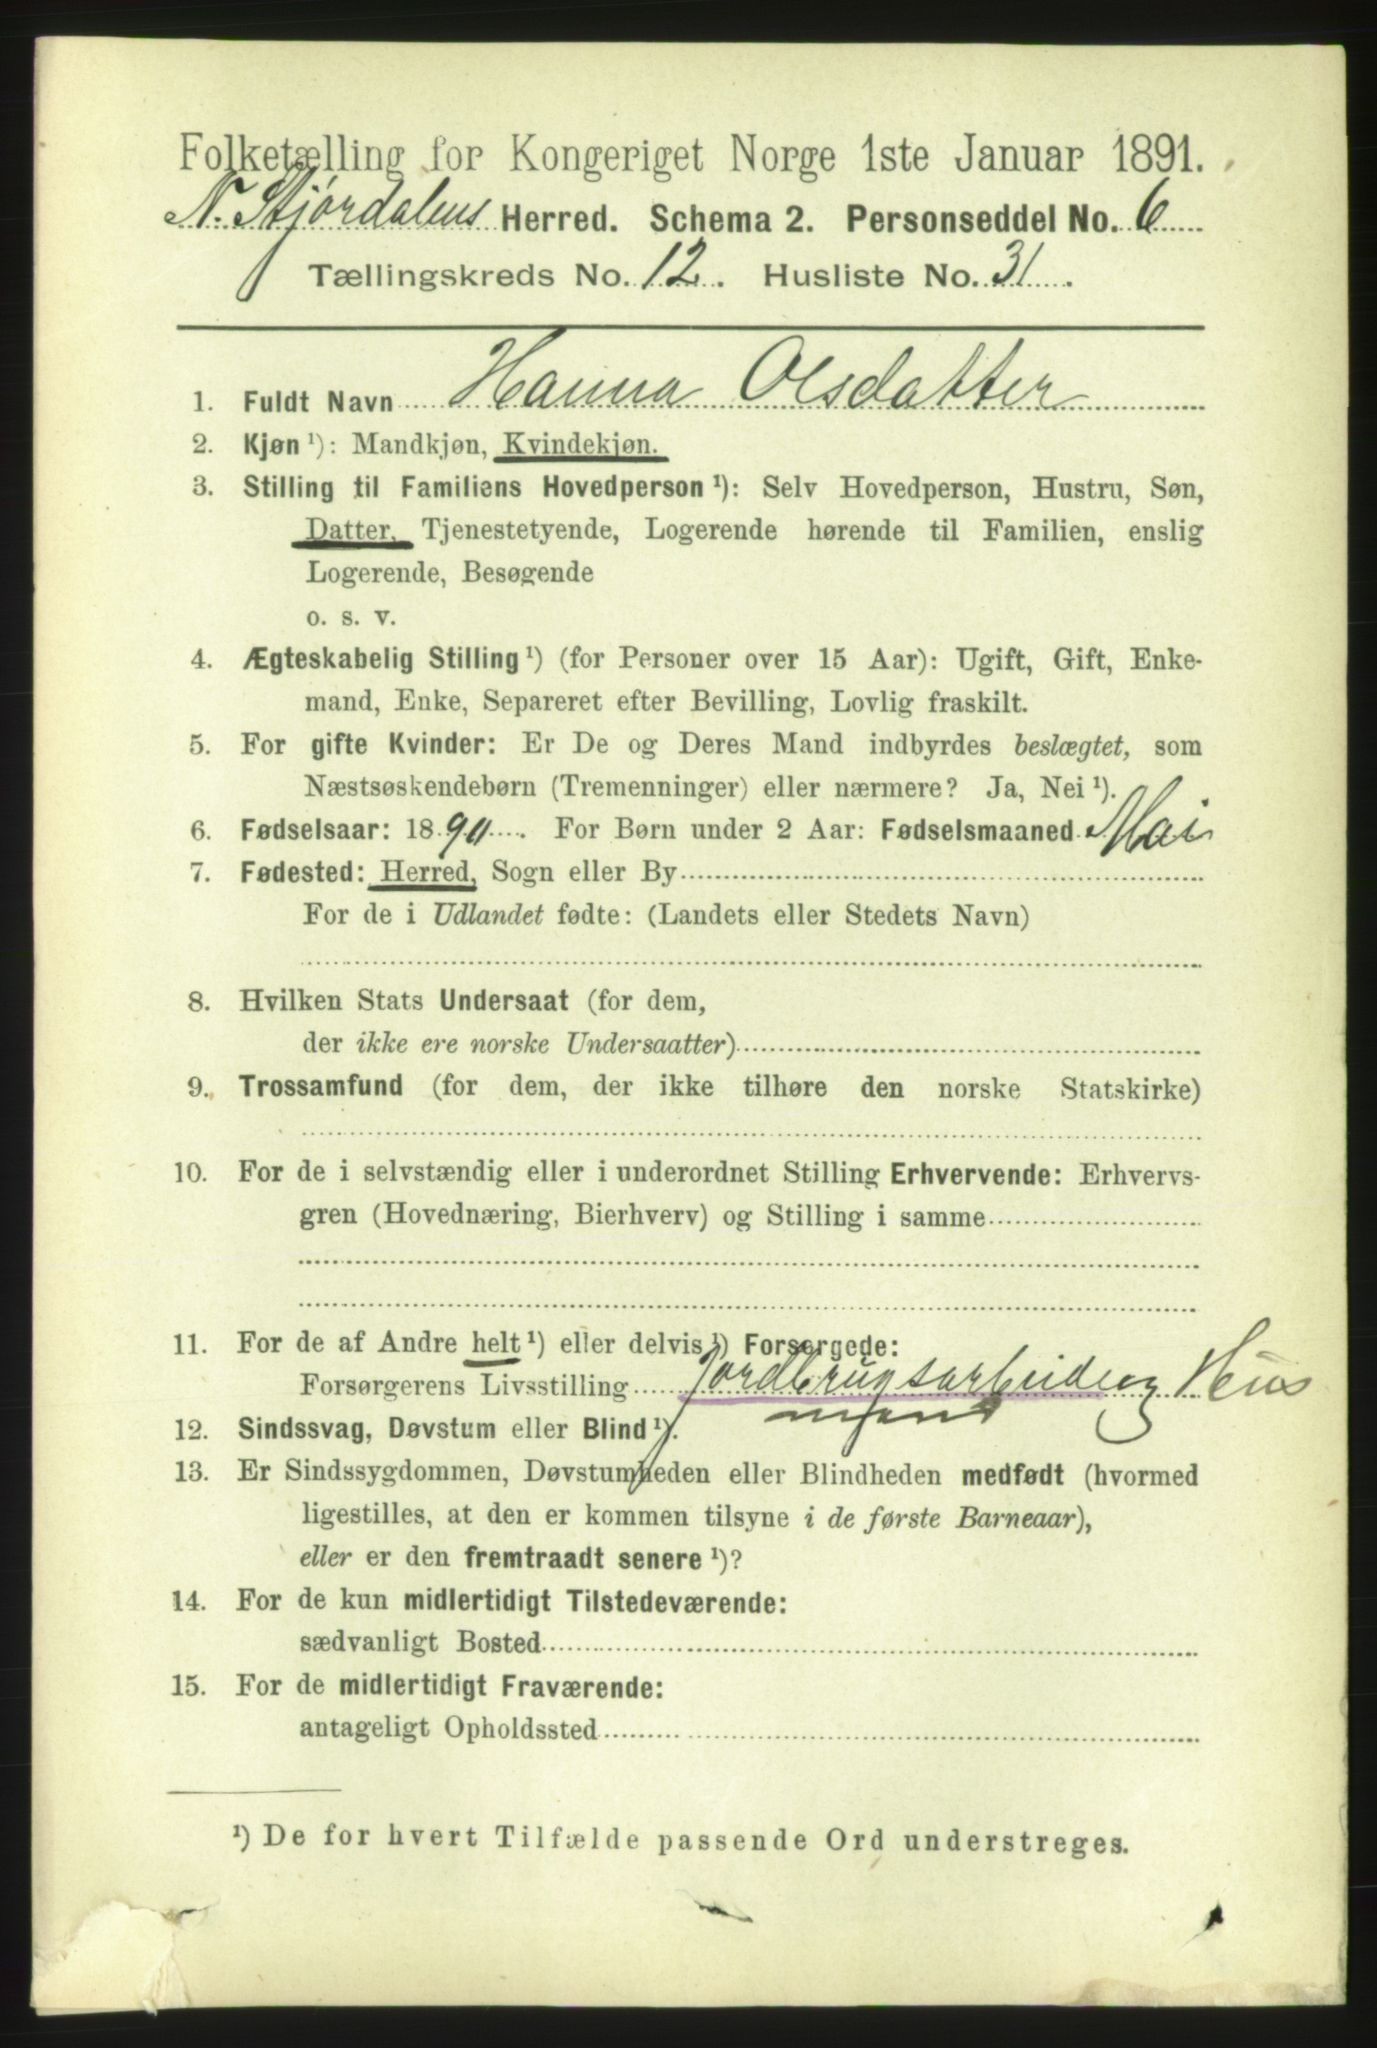 Folketælling for Kongeriget Norge 1ste Januar 1891.
N. Stjørdalens Herred. Schema 2. Personseddel No. 6
Tællingskreds No. 12. Husliste No. 31.
1. Fuldt Navn Hanna Olsdatter
2. Kjøn ¹): Mandkjøn, Kvindekjøn.
3. Stilling til Familiens Hovedperson ¹): Selv Hovedperson, Hustru, Søn,
Datter, Tjenestetyende, Logerende hørende til Familien, enslig
Logerende, Besøgende
o. s. v.
4. Ægteskabelig Stilling ¹) (for Personer over 15 Aar): Ugift, Gift, Enke-
mand, Enke, Separeret efter Bevilling, Lovlig fraskilt.
5. For gifte Kvinder: Er De og Deres Mand indbyrdes beslægtet, som
Næstsøskendebørn (Tremenninger) eller nærmere? Ja, Nei ¹).
6. Fødselsaar: 1890. For Børn under 2 Aar: Fødselsmaaned Mai
7. Fødested: Herred, Sogn eller By
For de i Udlandet fødte: (Landets eller Stedets Navn)
8. Hvilken Stats Undersaat (for dem,
der ikke ere norske Undersaatter)
9. Trossamfund (for dem, der ikke tilhøre den norske Statskirke)
10. For de i selvstændig eller i underordnet Stilling Erhvervende: Erhvervs-
gren (Hovednæring, Bierhverv) og Stilling i samme
11. For de af Andre helt ¹) eller delvis ¹) Forsørgede:
Forsørgerens Livsstilling Jordbrugsarbeide og Hus
mand
12. Sindssvag, Døvstum eller Blind ¹).
13. Er Sindssygdommen, Døvstumheden eller Blindheden medfødt (hvormed
ligestilles, at den er kommen tilsyne i de første Barneaar),
eller er den fremtraadt senere ¹)?
14. For de kun midlertidigt Tilstedeværende:
sædvanligt Bosted
15. For de midlertidigt Fraværende:
antageligt Opholdssted
¹) De for hvert Tilfælde passende Ord understreges.